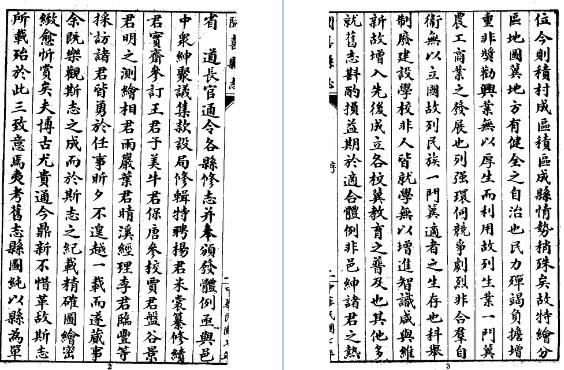 省　道長官通令各縣修志并奉頒發體例亟與邑
中衆紳聚議集款設局修輯特聘楊君米裳纂修續
君實齋參訂王君子美牛君保唐參校賈君盤谷景
君明之測繪相君雨巖葉君晴溪經理李君臨豐等
採訪諸君皆勇於任事昕夕不遑越一載而遂蕆事
余既樂觀斯志之成而於斯志之紀載精確圖繪密
緻愈忻賞矣夫博古尤貴通今鼎新不惜革故斯志
所載殆於此三致意焉夷考舊志縣圖純以縣為單
2
位今則積村成區積區成縣情勢稍殊矣故特繪分
區地圖冀地方有健全之自治也民力殫竭負擔增
重非獎勸興業無以厚生而利用故列生業一門冀
農工商業之發展也列强環伺競爭劇烈非合羣自
衛無以立國故列民族一門冀適者之生存也科舉
制廢建設學校非人皆就學無以增進智識咸與維
新故增入先後成立各校冀教育之普及也其他多
就舊志斟酌損益期於適合體例非邑紳諸君之熱
3